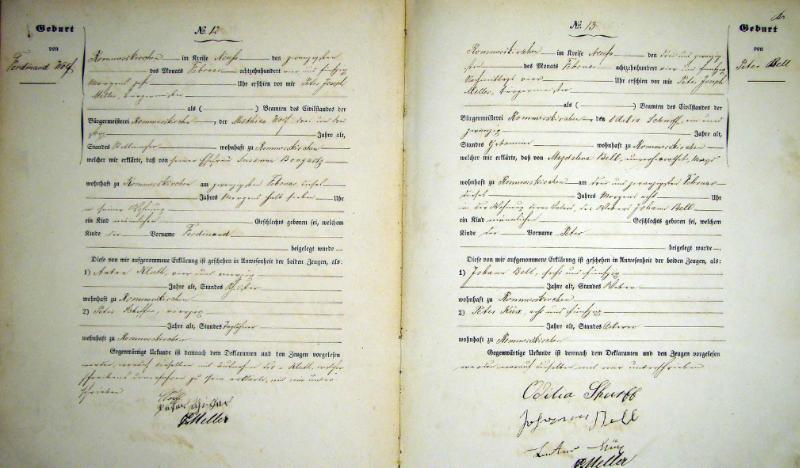 Geburt
von
Ferdinand Wolf
№ 12
Rommerskirchen im Kreise Neuss den zwanzigsten
des Monats Februar achtzehnhundert vier und fünfzig
Morgens Uhr erschien vor mir Peter Joseph
Meller, Bürgermeister
als ( ) Beamten des Civilstandes der
Bürgermeisterei Rommerskirchen, der Mathias Wolf drei und
Jahre alt,
Standes wohnhaft zu Rommerskirchen
welcher mir erklärte, daß von seiner Ehefrau Susanna Bongartz
wohnhaft zu Rommerskirchen am zwanzigsten Februar dieses
Jahres Morgens halb sieben Uhr
in seiner Wohnung
ein Kind männlichen Geschlechts geboren sei, welchem
Kinde der Vorname Ferdinand
beigelegt wurde
Diese von mir aufgenommene Erklärung ist geschehen in Anwesenheit der beiden Zeugen, als:
1) Anton vier und
Jahre alt, Standes
wohnhaft zu Rommerskirchen
2) Peter
Jahre alt, Standes Taglöhner
wohnhaft zu Rommerskirchen
Gegenwärtige Urkunde ist demnach dem Deklaranten und den Zeugen vorgelesen
worden, worauf dieselben mit
schreiben
Wolf
Peter
PMeller
Geburt
von
Peter Bell
№ 13
Rommerskirchen im Kreise Neuss den drei und zwanzig
sten des Monats Februar achtzehnhundert vier und fünfzig
Vormittags vier Uhr erschien vor mir Peter Joseph
Meller, Bürgermeister
als ( ) Beamten des Civilstandes der
Bürgermeisterei Rommerskirchen, die Odilia Scharff, ein und
Jahre alt,
Standes Hebamme wohnhaft zu Rommerskirchen
welche mir erklärte, daß von Magdalena Bell, unverheirathet, Magd
wohnhaft zu Rommerskirchen am drei und zwanzigsten Februar
dieses Jahres Morgens acht Uhr
in der Wohnung ihres Vaters, des Webers Johann Bell
ein Kind männlichen Geschlechts geboren sei, welchem
Kinde der Vorname Peter
beigelegt wurde
Diese von mir aufgenommene Erklärung ist geschehen in Anwesenheit der beiden Zeugen, als:
1) Johann Bell, sechs und fünfzig
Jahre alt, Standes Weber
wohnhaft zu Rommerskirchen
2) Peter acht und fünfzig
Jahre alt, Standes
wohnhaft zu Rommerskirchen
Gegenwärtige Urkunde ist demnach dem Deklaranten und den Zeugen vorgelesen
worden, worauf dieselben mit mir unterschrieben
Odilia Scharff
Johann Bell
PMeller